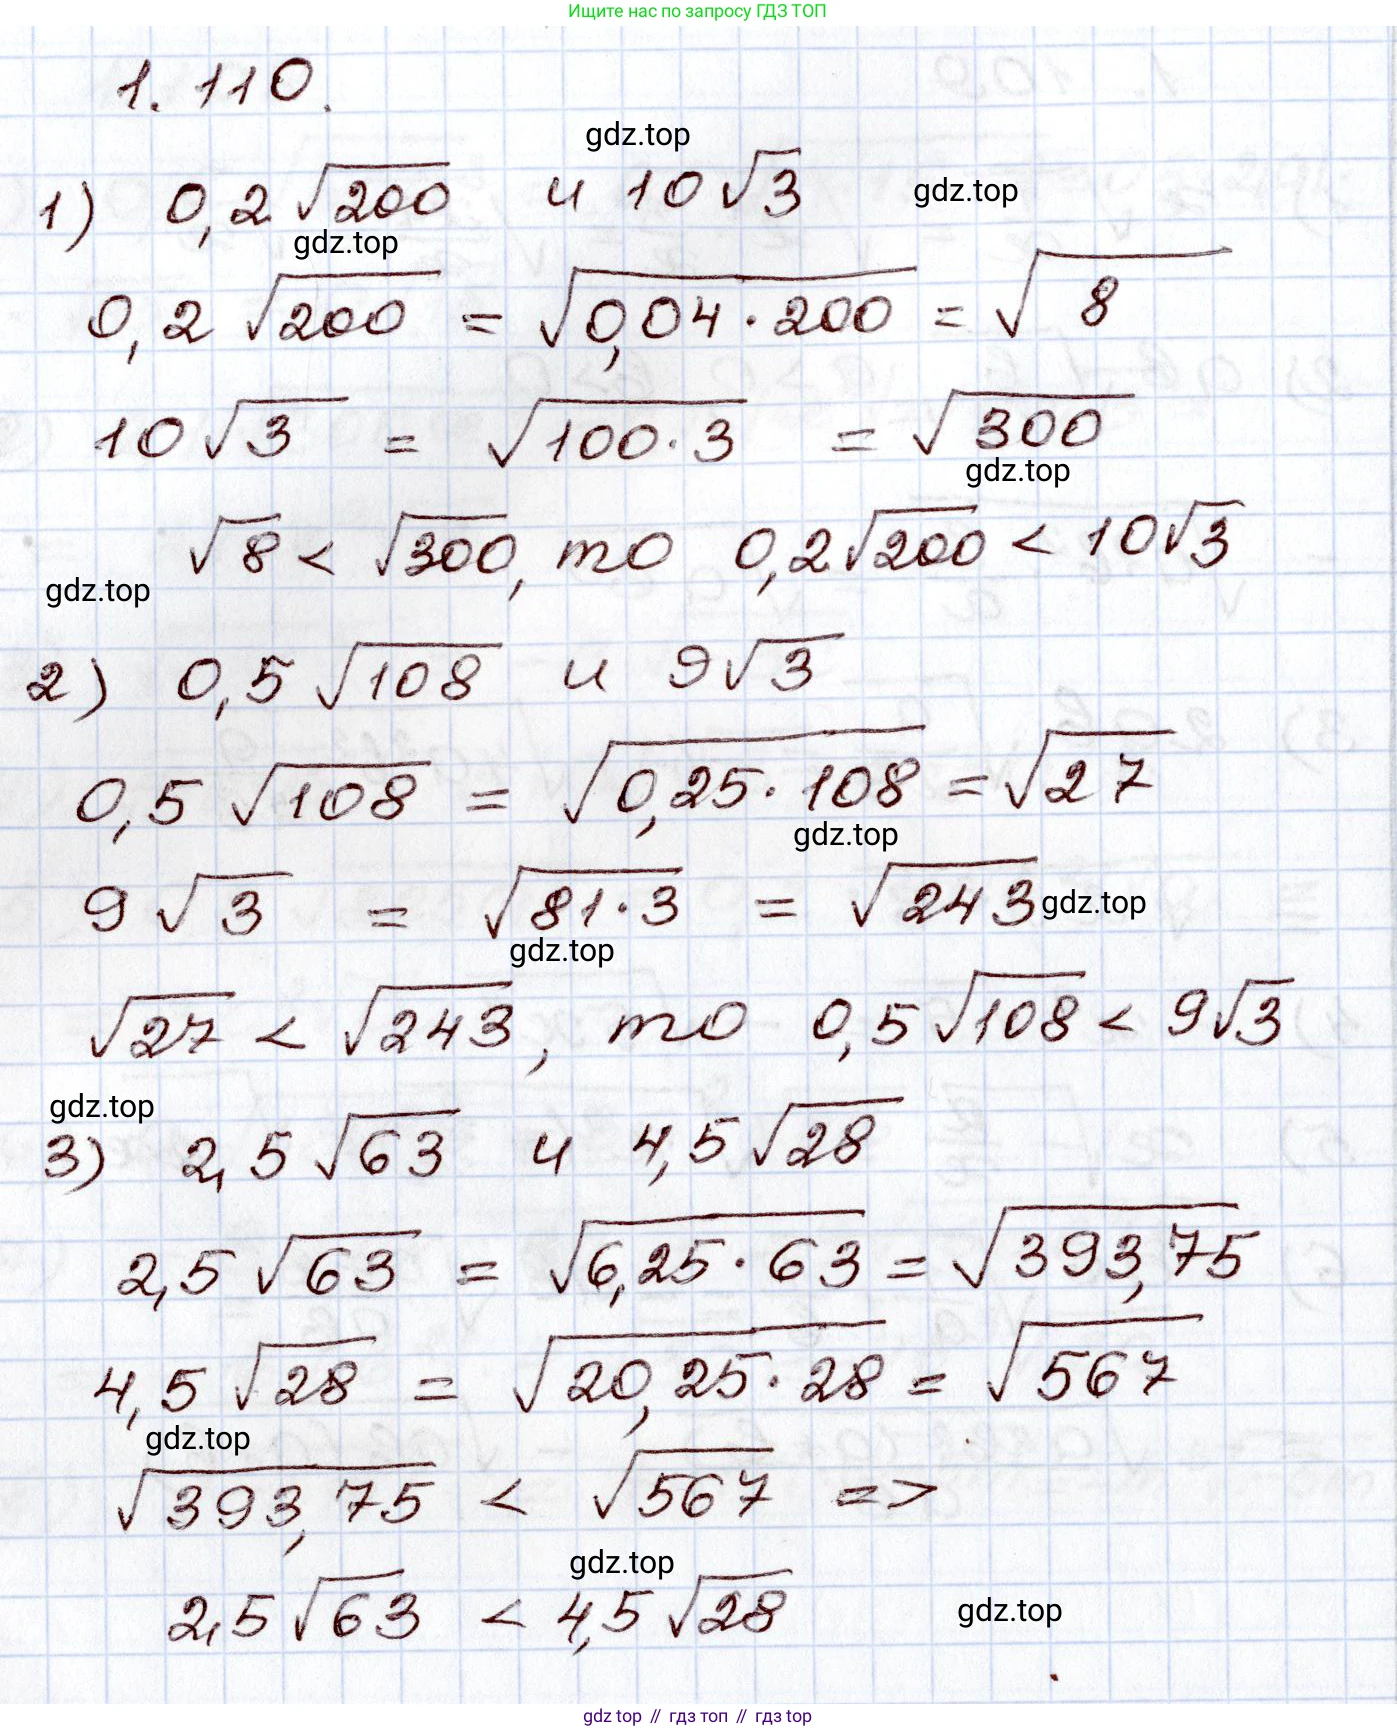 Ищите нас по запросу ГДЗ ТОП
1.110.
gdz.top
1) 0,2√200 и 10√3
gdz.top
gdz.top
0,2√200 = √0,04·200 = √8
10√3 = √100·3 = √300
gdz.top
√8 < √300, то 0,2√200 < 10√3
gdz.top
2) 0,5√108 и 9√3
0,5√108 = √0,25·108 = √27
gdz.top
9√3 = √81·3 = √243
gdz.top
gdz.top
√27 < √243, то 0,5√108 < 9√3
gdz.top
3) 2,5√63 и 4,5√28
2,5√63 = √6,25·63 = √393,75
4,5√28 = √20,25·28 = √567
gdz.top
√393,75 < √567 =>
gdz.top
2,5√63 < 4,5√28
gdz.top
gdz top // гдз топ // гдз top